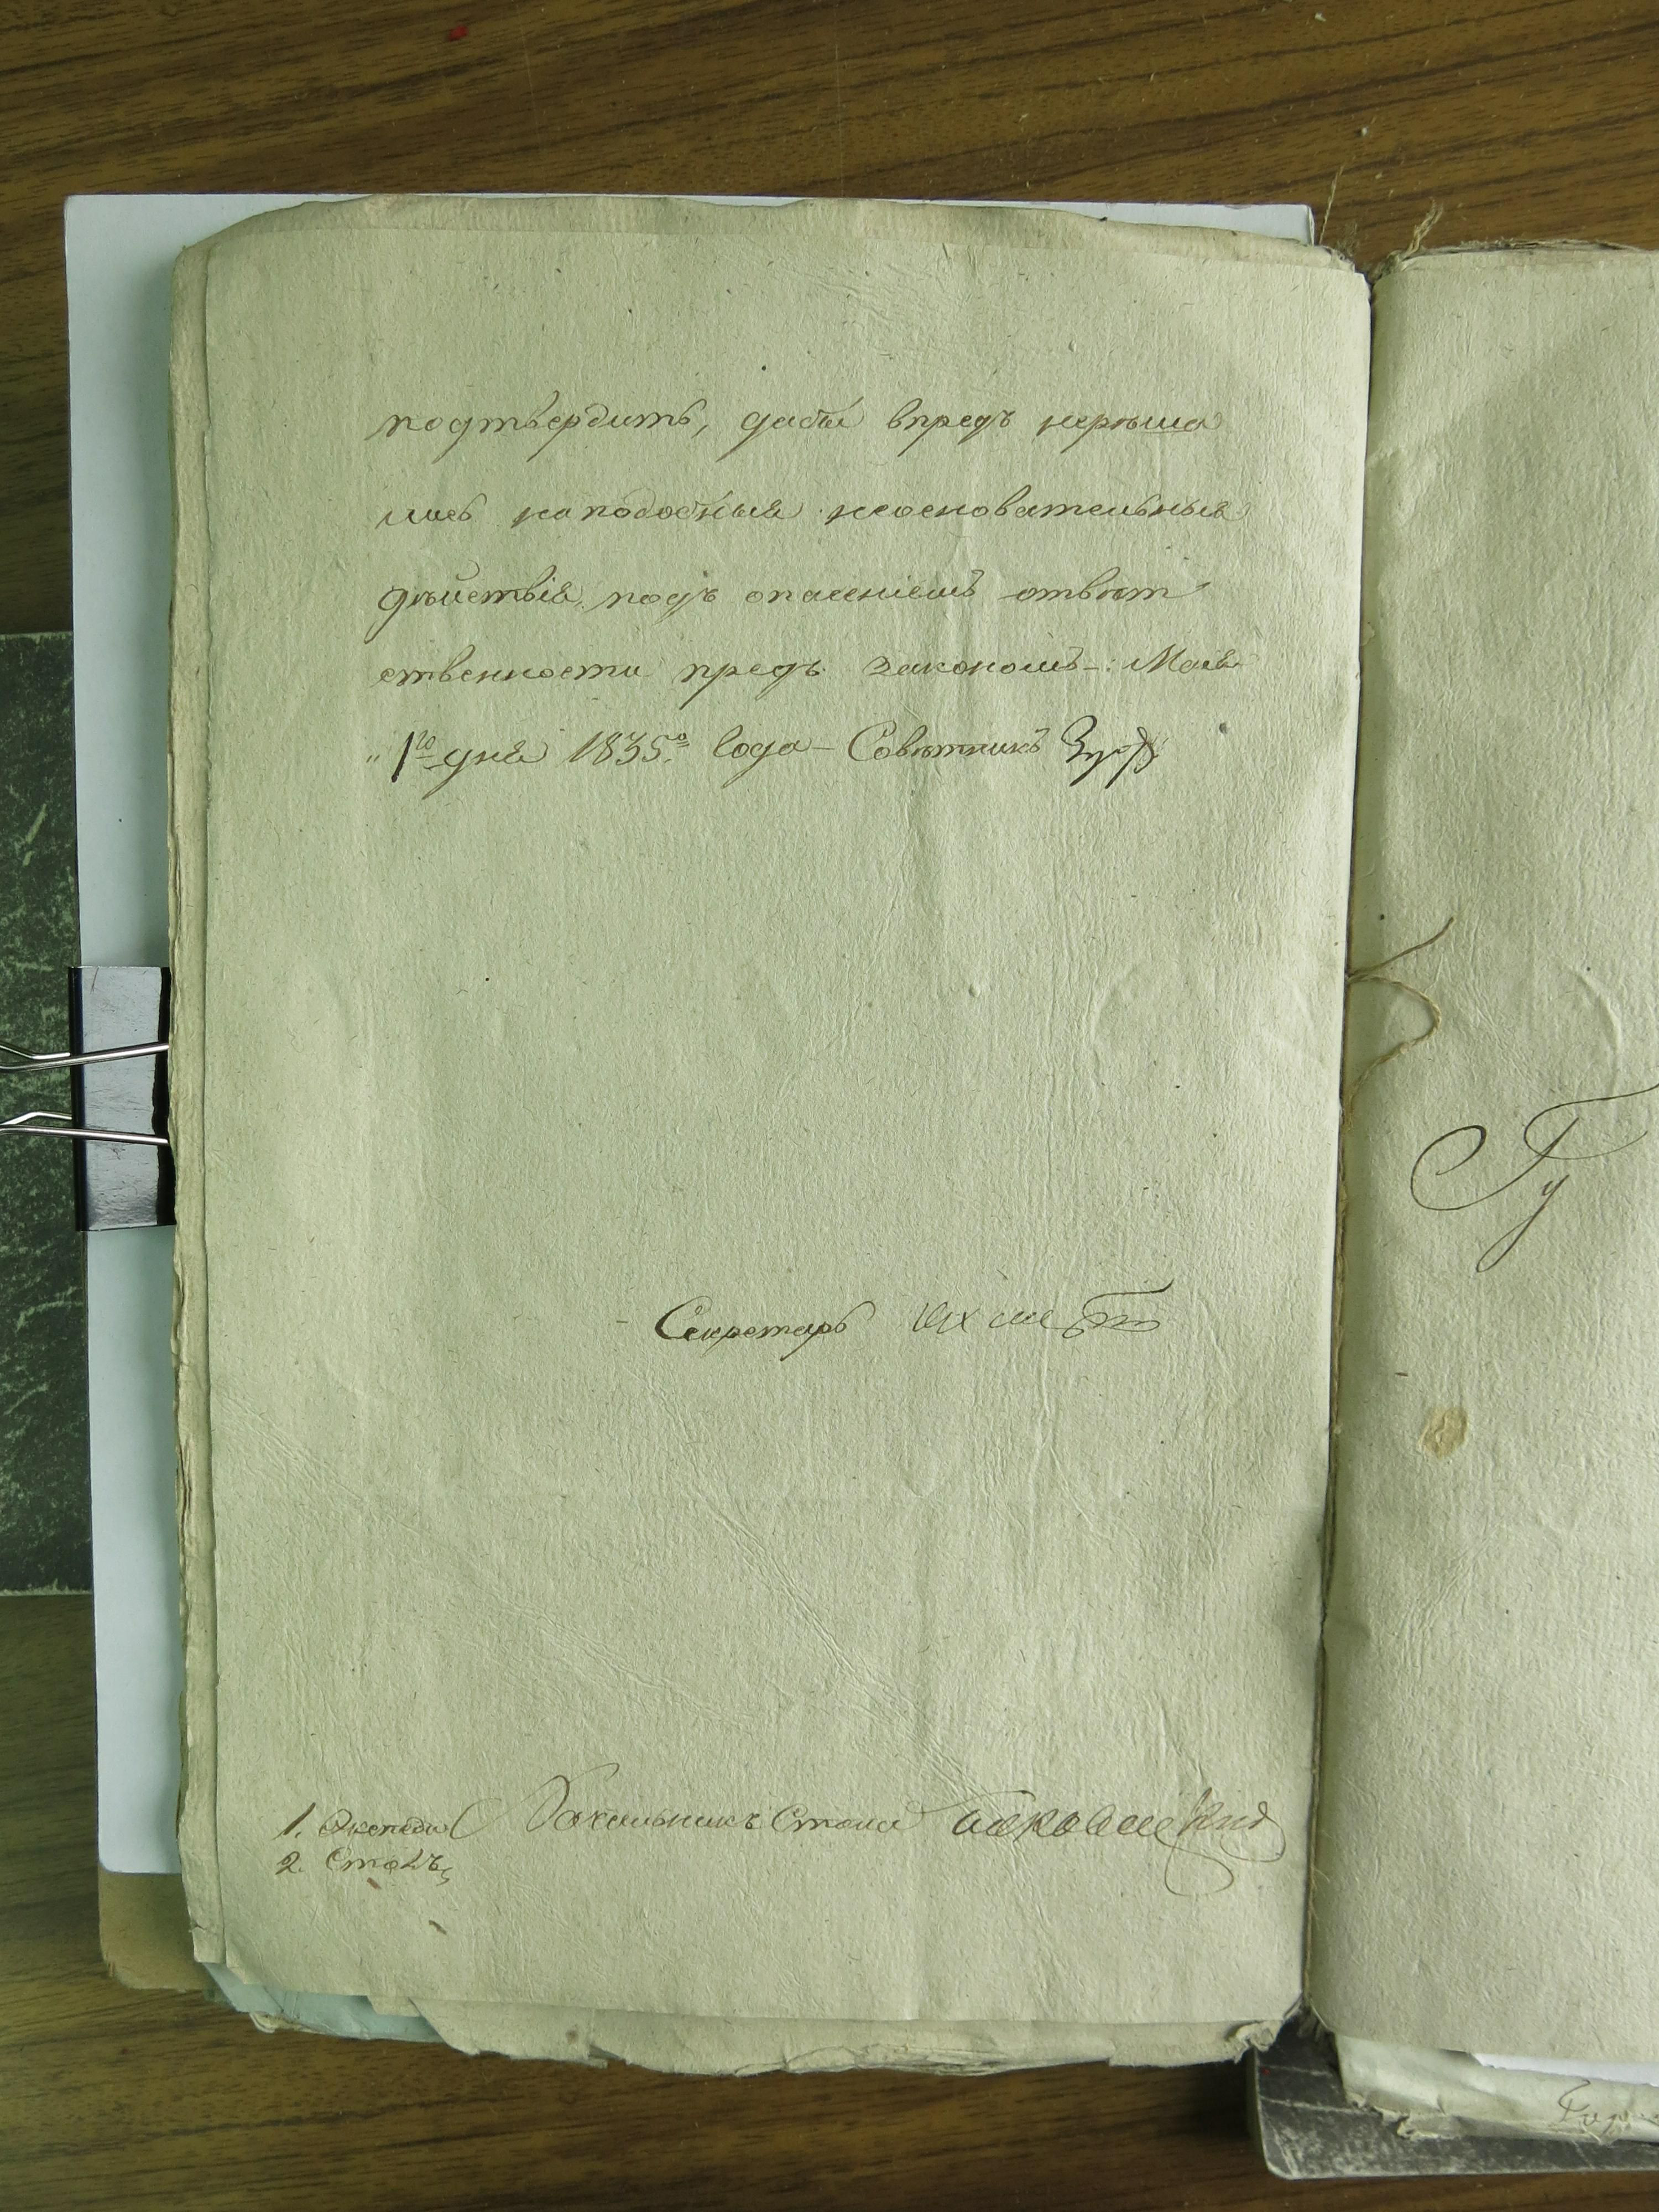 подтвердить, дабы впредь нерѣша
лись наподобныя неосновательныя
дѣйствія, подъ опасеніемъ отвѣт
ственности предъ закономъ. Маія
„1го дня 1835го года – Совѣтникъ
Секретарь
1. Экспеди
Начальникъ Стола
2. Столъ
Гу